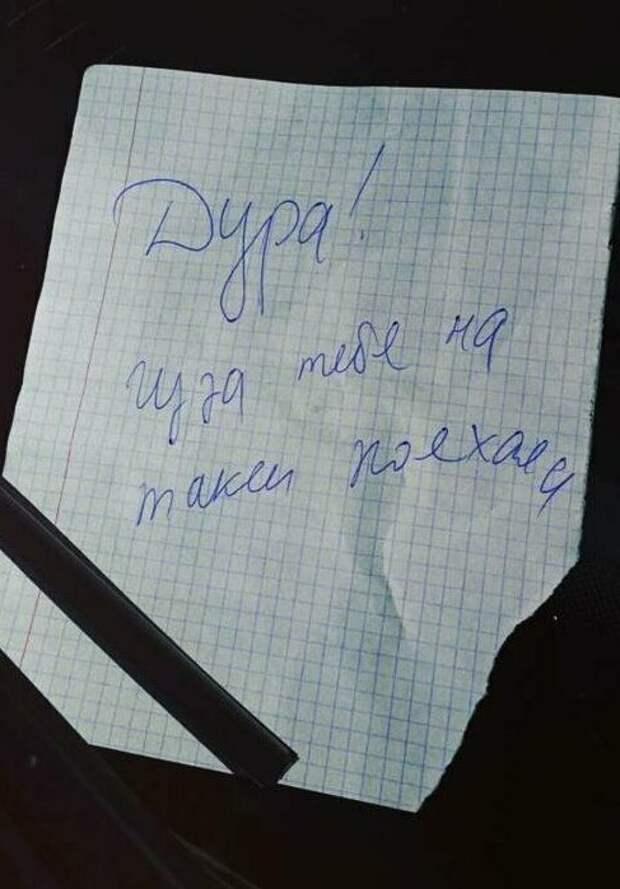 Дура!
из за тебе на
такси поехала